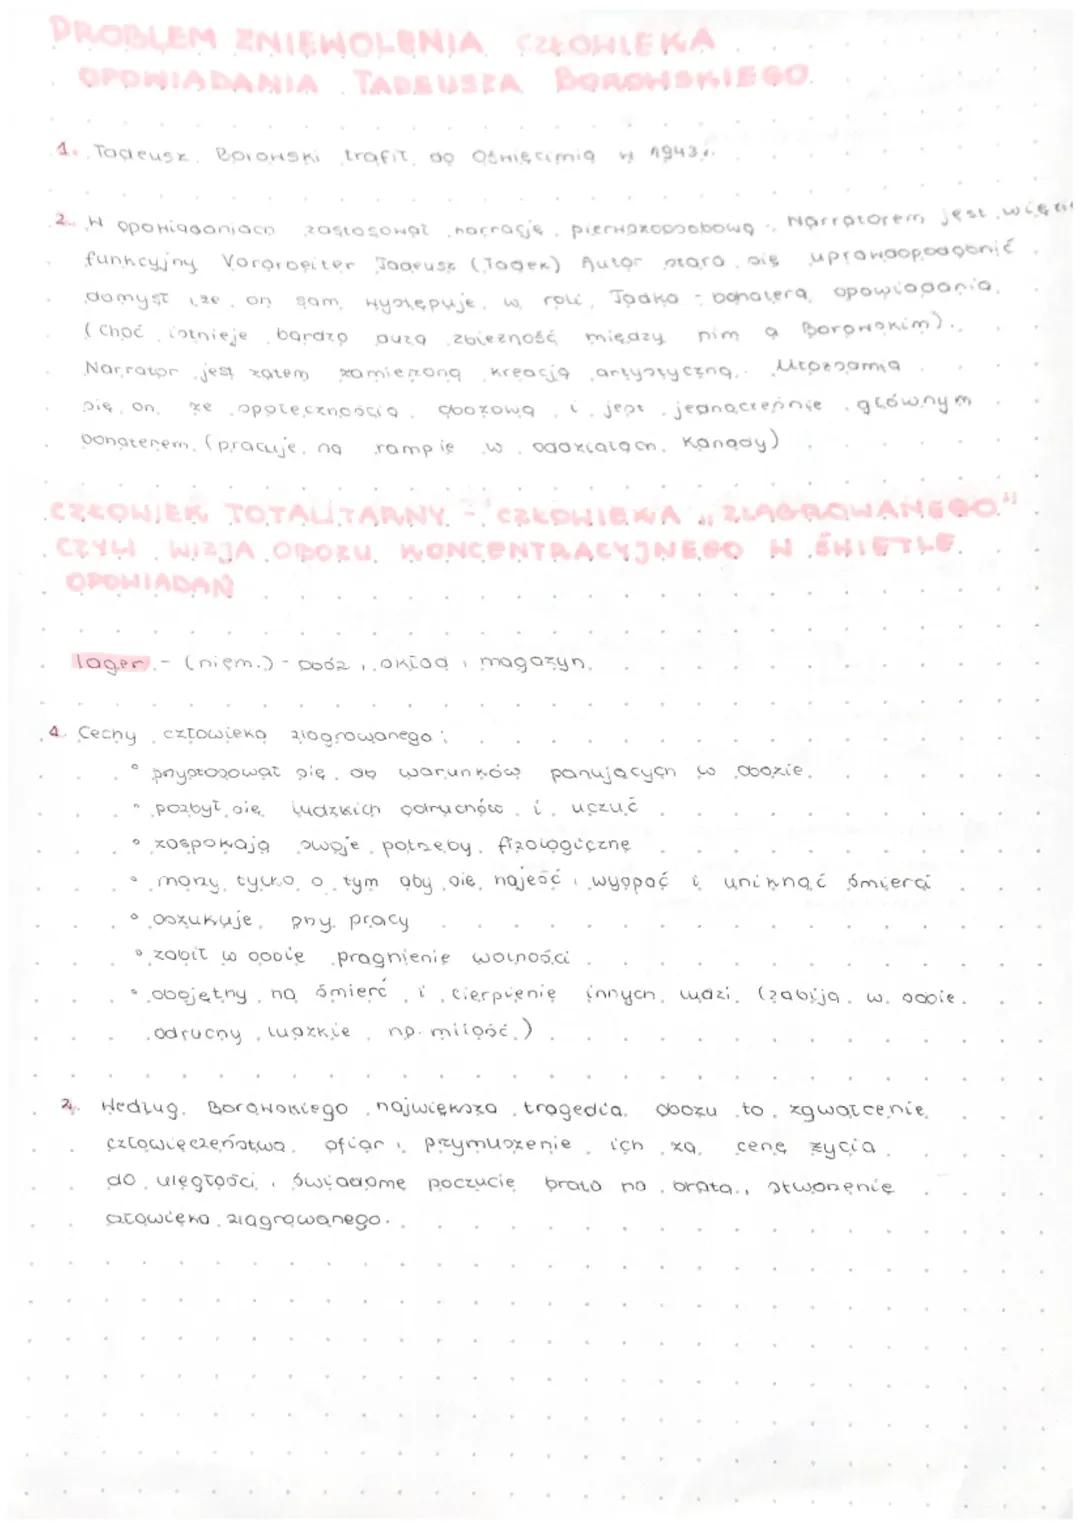 PROBLEM ZNIEWOLENIA CZŁOWIEKA
OPOWIADANIA TADEUSZA BOROWSKIEGO.
1. Tadeusz Borowski trafił do Oświęcimia w 1943r.
2. W opowiadaniach zastosował narrację pierwszoosobową. Narratorem jest więzie
funkcyjny Vorarbeiter Tadeusz (Tadek) Autor stara się uprawdopodobnić
domysł, że on sam występuje w roli Tadka - bohatera opowiadania.
(Choć istnieje bardzo duża zbieżność między nim a Borowskim).
Narrator jest zatem zamierzoną kreacją artystyczną. Utożsamia
się on ze społecznością obozową i jest jednocześnie głównym
bohaterem (pracuje na rampie w oddziałach Kanady)
CZŁOWIEK TOTALITARNY - CZŁOWIEKA „ZLAGROWANEGO"
CZYLI WIZJA OBOZU KONCENTRACYJNEGO W ŚWIETLE
OPOWIADAŃ
lager - (niem.) - obóz, skład, magazyn.
1. Cechy człowieka zlagrowanego:
° przystosował się do warunków panujących w obozie.
° pozbył się ludzkich odruchów i uczuć
° zaspokaja swoje potrzeby fizologiczne
° marzy tylko o tym aby się najeść, wyspać i uniknąć śmierci
° oszukuje przy pracy
° zabił w sobie pragnienie wolności
° obojętny na śmierć i cierpienie innych ludzi (zabija w sobie
odruchy ludzkie np. miłość.)
2. Według Borowskiego największa tragedia obozu to zgwałcenie
człowieczeństwa ofiar, przymuszenie ich za cenę życia
do uległości, świadome poczucie brata na brata, stworzenie
człowieka zlagrowanego.